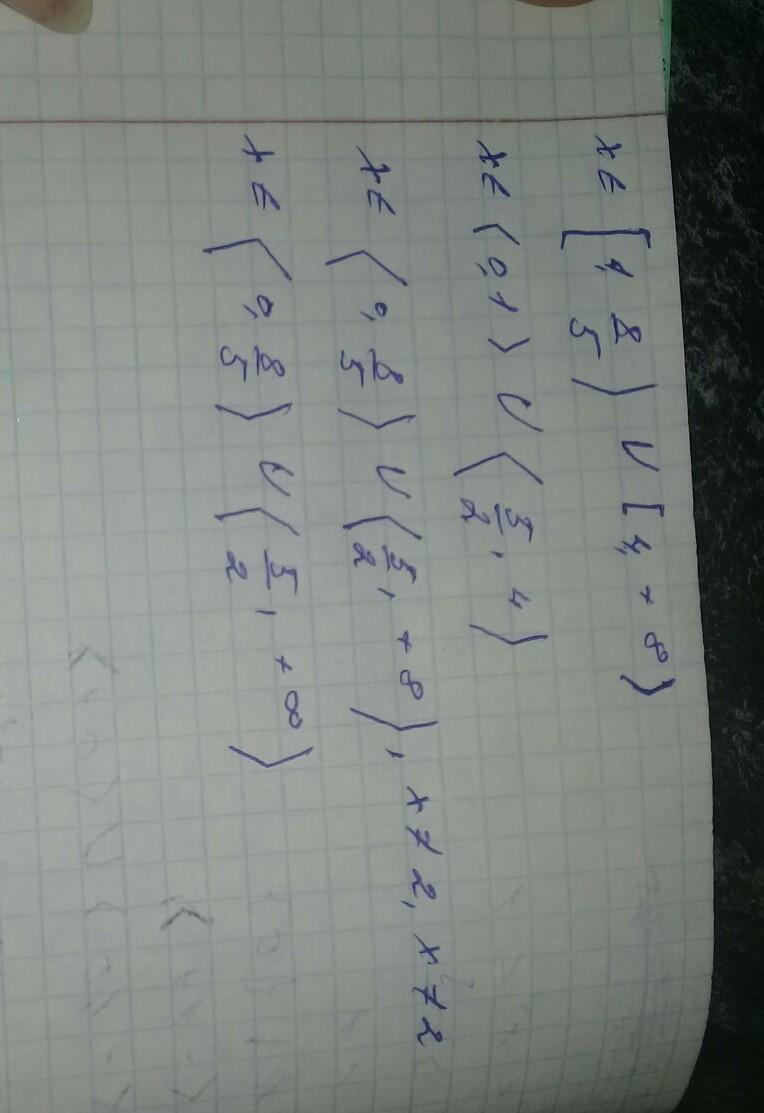 x ∈ [1, 8/5⟩ ∪ [4, +∞⟩
x ∈ ⟨0, 1⟩ ∪ ⟨5/2, 4⟩
x ∈ ⟨0, 8/5⟩ ∪ ⟨5/2, +∞⟩, x ≠ 2, x ≠ 2
x ∈ ⟨0, 8/5⟩ ∪ ⟨5/2, +∞⟩